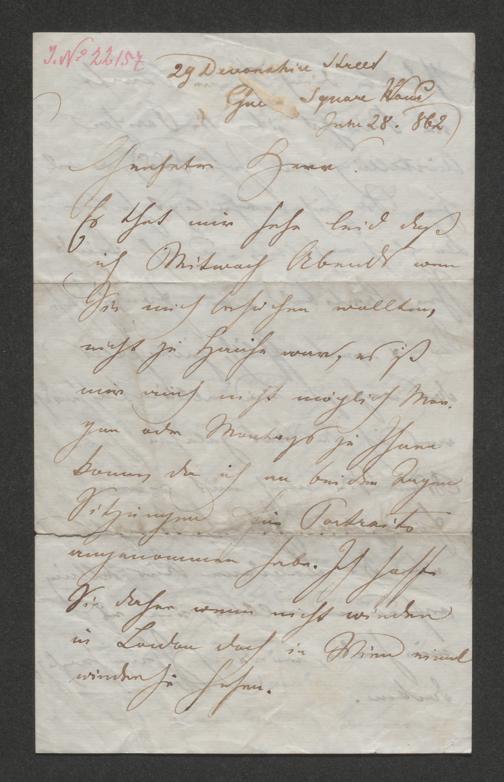 I. No 22157
29 Devonshire Street
Square
June 28. 862
Geehrter Herr.
Es that mir sehr leid daß
ich Mitwoch Abends wenn
Sie mich besuchen wollten,
nicht zu Hause war, es ist
mir auch nicht möglich Mor-
gen oder Montags zu Ihnen
kommen da ich an beiden Tagen
Sitzungen für Portraits
angenommen habe. Ich hoffe
Sie daher wenn nicht wieder
in London doch in Wien einmal
wieder zu sehen.